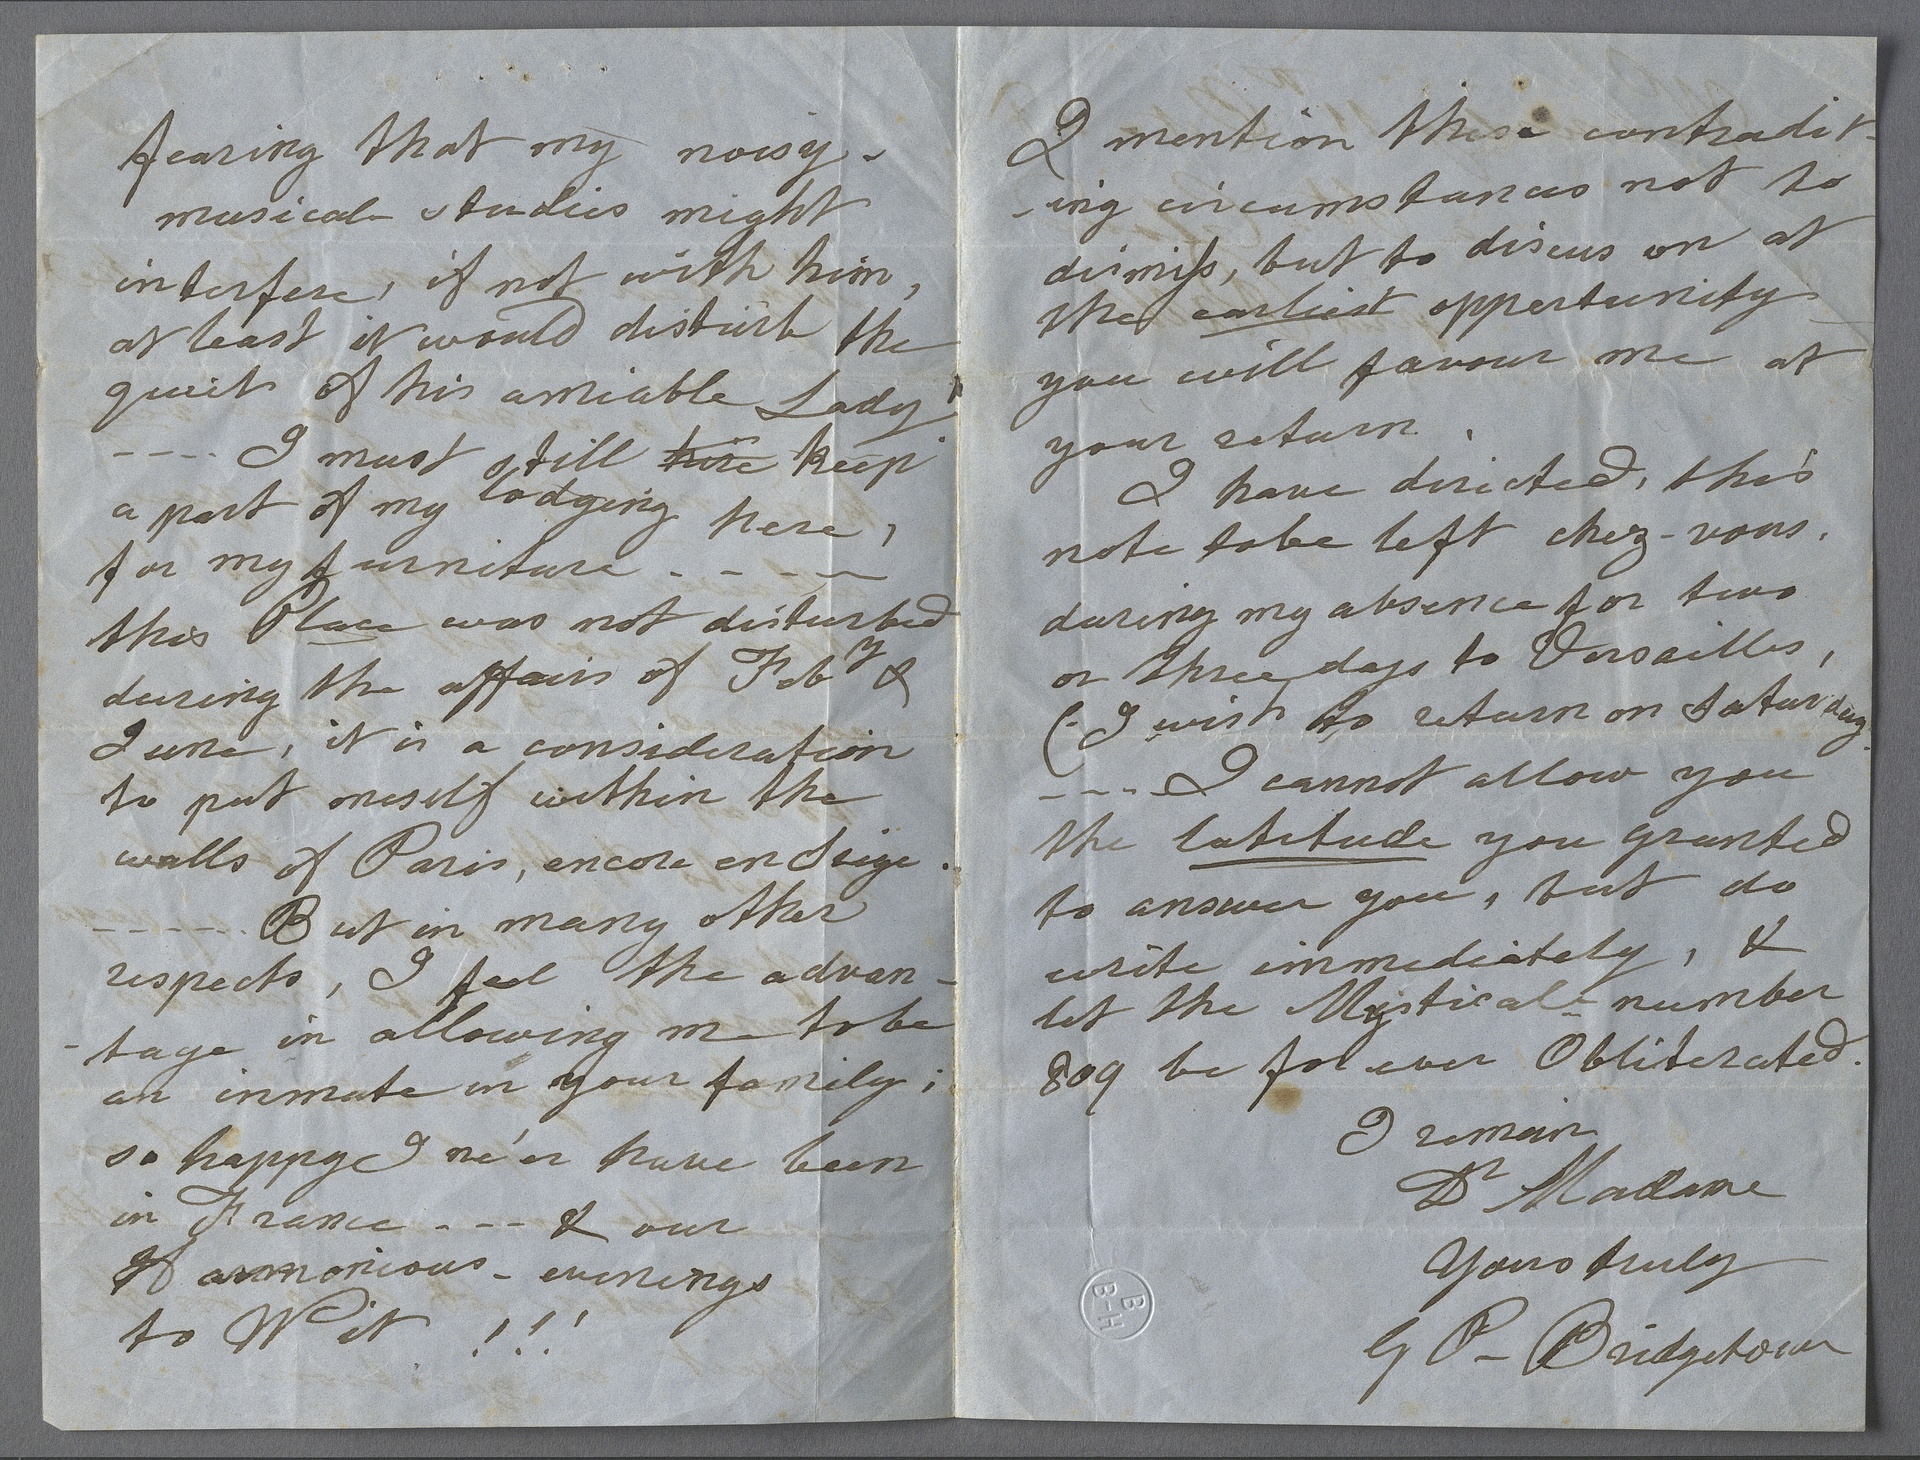 fearing that my noisy-
musical studies might
interfere, if not with him,
at least it would disturb the
quiet of his amiable Lady
---- I must still hire keep
a part of my lodging here,
for my furniture - - - -
this Place was not disturbed
during the affairs of Feby &
June, it is a consideration
to put meself within the
walls of Paris, encore en Siège.
----- But in many other
respects, I feel the advan-
-tage in allowing me to be
an inmate in your family;
so happy I ne'er have been
in France - - - & our
Harmonious - evenings
to Wit !!!
I mention these contradict-
-ing circumstances not to
dismiss, but to discus on at
the earliest oppertunity
you will favour me at
your return.
I have directed, this
note to be left chez-vous,
during my absence for two
or three days to Versailles,
(I wish to return on Saturday.
---- I cannot allow you
the latitude you granted
to answer you, but do
write immediately, &
let the Mystical-number
809 be for ever Obliterated.
I remain
Dr Madame
Yours truly
G P- Bridgetower
B
B-H